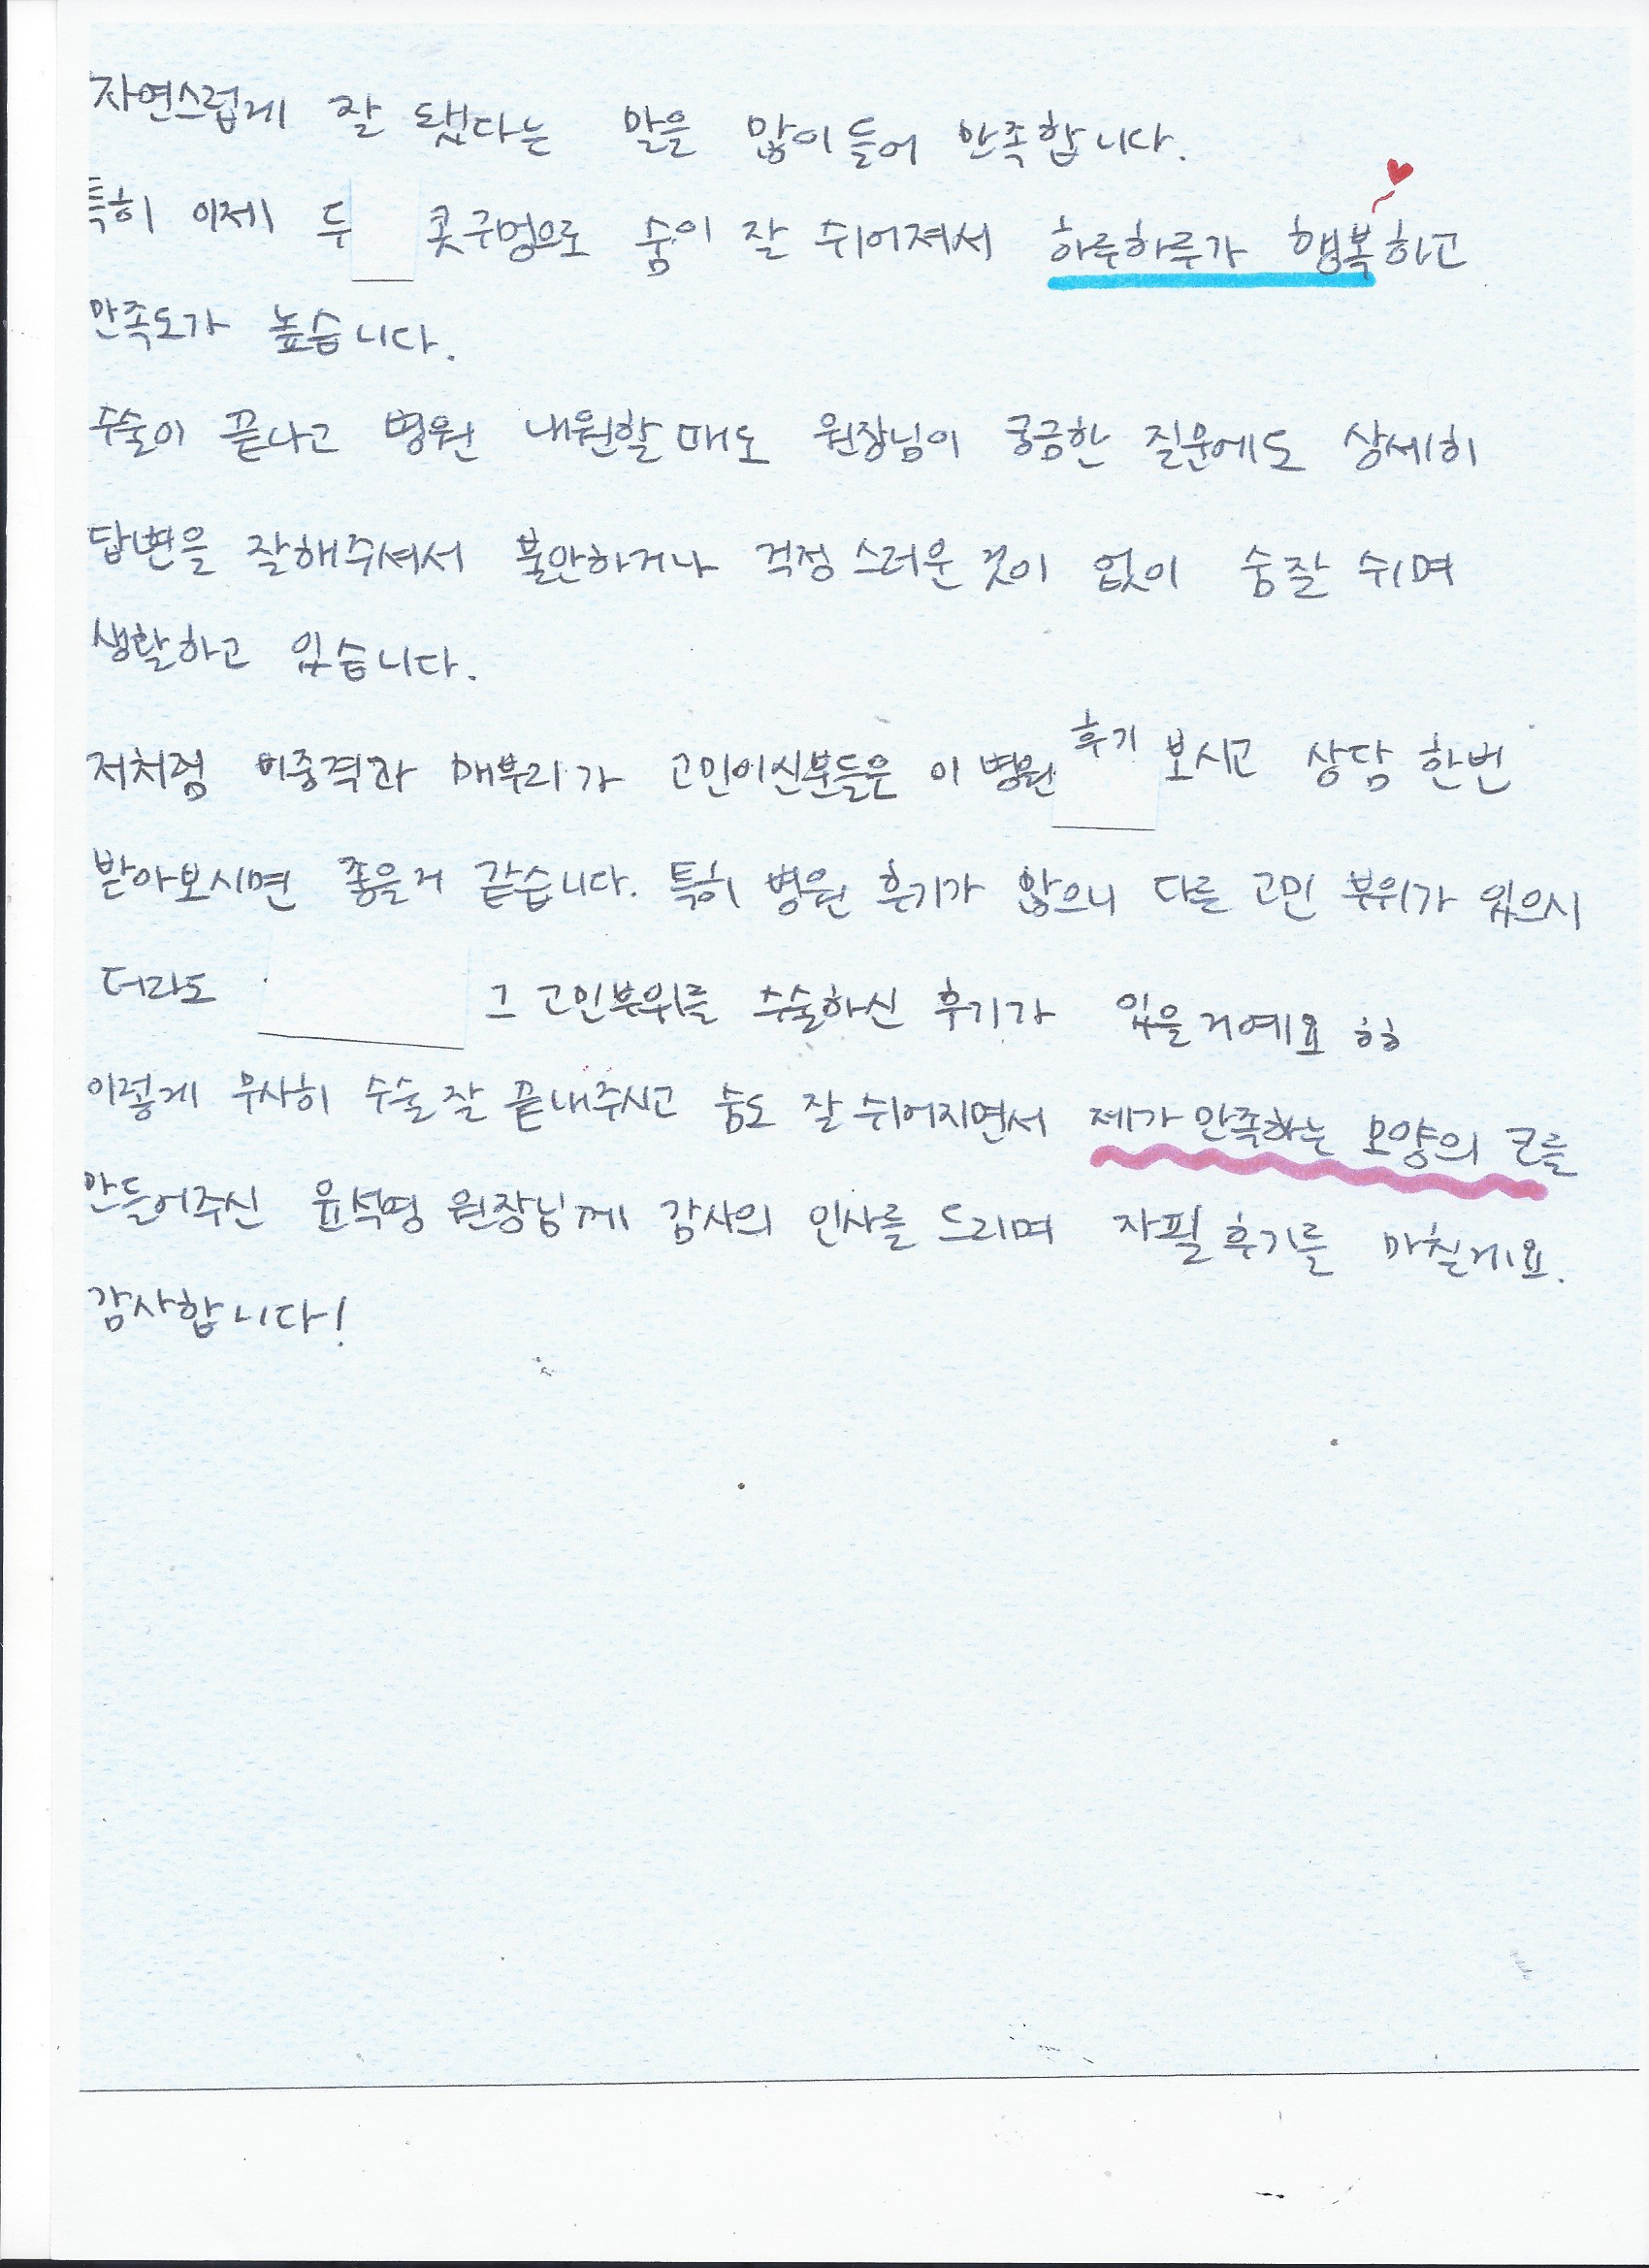 자연스럽게 잘 됐다는 말을 많이 들어 만족합니다.
특히 이제 두 콧구멍으로 숨이 잘 쉬어져서 하루하루가 행복하고
만족도가 높습니다.
수술이 끝나고 병원 내원할 때도 원장님이 궁금한 질문에도 상세히
답변을 잘해주셔서 불안하거나 걱정스러운 것이 없이 숨 잘 쉬며
생활하고 있습니다.
저처럼 비중격과 매부리가 고민이신분들은 이 병원 후기 보시고 상담 한번
받아보시면 좋을거 같습니다. 특히 병원 후기가 많으니 다른 고민 부위가 있으시
더라도 그 고민부위를 수술하신 후기가 있을거예요 ㅎㅎ
이렇게 무사히 수술 잘 끝내주시고 숨도 잘 쉬어지면서 제가 만족하는 모양의 코를
만들어주신 윤석영 원장님께 감사의 인사를 드리며 자필 후기를 마칠게요.
감사합니다!